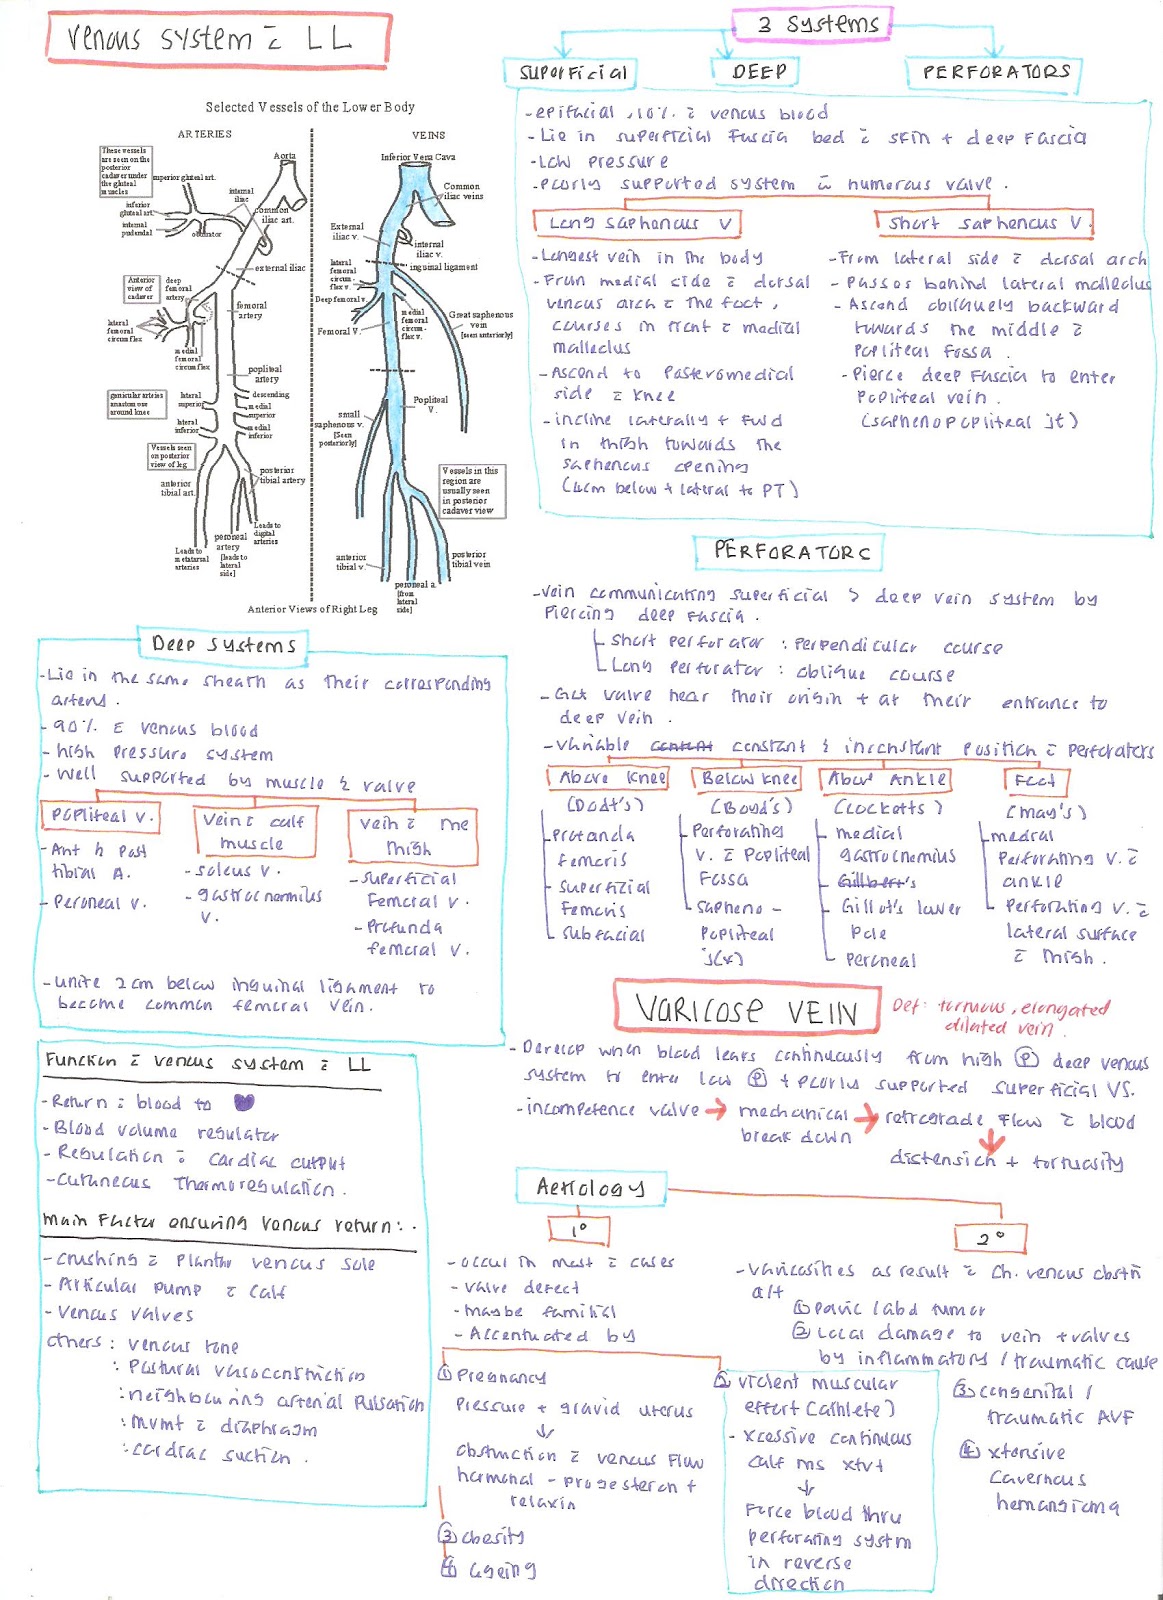 Venous system c̄ LL
3 systems
superficial
DEEP
PERFORATORS
- epifacial, 10% c̄ venous blood
- Lie in superficial fascia bed c̄ skin + deep fascia
- Low pressure
- Poorly supported system c̄ numerous valve.
Long saphenous V
- Longest vein in the body
- From medial side c̄ dorsal
venous arch c̄ the foot,
courses in front c̄ medial
malleolus
- Ascend to posteromedial
side c̄ knee
- incline laterally + fwd
in thigh towards the
saphenous opening
(4cm below + lateral to PT)
Short saphenous V.
- From lateral side c̄ dorsal arch
- Passes behind lateral malleolus
- Ascend obliquely backward
towards the middle c̄
popliteal fossa.
- Pierce deep fascia to enter
popliteal vein.
(saphenopopliteal jt)
Selected Vessels of the Lower Body
ARTERIES
These vessels
are seen on the
posterior
cadaver under
the gluteal
muscles
superior gluteal art.
Aorta
internal
iliac
inferior
gluteal art.
internal
pudendal
obturator
common
iliac art.
external iliac
Anterior
view of
cadaver
deep
femoral
artery
femoral
artery
lateral
femoral
circumflex
medial
femoral
circumflex
popliteal
artery
genicular arteries
anastomose
around knee
lateral
superior
descending
medial
superior
lateral
inferior
medial
inferior
Vessels seen
on posterior
view of leg
anterior
tibial art.
posterior
tibial artery
peroneal
artery
[leads to
lateral
side]
Leads to
digital
arteries
Leads to
metatarsal
arteries
VEINS
Inferior Vena Cava
Common
iliac veins
External
iliac v.
internal
iliac v.
lateral
femoral
circum-
flex v.
inguinal ligament
Deep femoral v.
Femoral V.
medial
femoral
circum-
flex v.
Great saphenous
vein
[seen anteriorly]
small
saphenous v.
[Seen
posteriorly]
Popliteal
V.
Vessels in this
region are
usually seen
in posterior
cadaver view
anterior
tibial v.
posterior
tibial vein
peroneal a.
[from
lateral
side]
Anterior Views of Right Leg
PERFORATORS
- Vein communicating superficial > deep vein system by
piercing deep fascia.
Short perforator : perpendicular course
Long perforator : oblique course
- Got valve near their origin + at their entrance to
deep vein.
- Variable content constant & inconstant position c̄ perforators
Above knee
(Dodd's)
profunda
femoris
superficial
femoris
subfacial
Below knee
(Boyd's)
Perforating
v. c̄ popliteal
fossa
sapheno-
popliteal
j(x)
About Ankle
(Cocketts)
medial
gastrocnemius
Gillbert's
Gillot's lower
pole
peroneal
Foot
(May's)
medial
perforating v. c̄
ankle
perforating v. c̄
lateral surface
c̄ thigh.
Deep systems
- Lie in the same sheath as their corresponding
artery.
- 90% c̄ venous blood
- high pressure system
- Well supported by muscle & valve
popliteal v.
- Ant & post
tibial A.
- Peroneal v.
Vein c̄ calf
muscle
- soleus v.
- gastrocnemius
v.
Vein c̄ the
thigh
- superficial
femoral v.
- Profunda
femoral v.
- unite 2cm below inguinal ligament to
become common femoral vein.
VARICOSE VEIN
Def: tortuous, elongated
dilated vein.
- Develop when blood leaks continuously from high (P) deep venous
system to enter low (P) + poorly supported superficial VS.
- incompetence valve → mechanical → retrograde flow c̄ blood
break down
distension + tortuosity
Function c̄ venous system c̄ LL
- Return c̄ blood to
- Blood volume regulator
- Regulation c̄ cardiac output
- Cutaneous Thermoregulation.
Main Factor ensuring Venous return:.
- crushing c̄ plantar venous sole
- Articular pump c̄ calf
- Venous valves
others : venous tone
: Postural vasoconstriction
: neighbouring arterial pulsation
: mvmt c̄ diaphragm
: cardiac suction.
Aetiology
1°
- occur in most c̄ cases
- valve defect
- maybe familial
- Accentuated by
① Pregnancy
pressure + gravid uterus
↓
obstruction c̄ venous flow
hormonal - progesteron +
relaxin
③ obesity
④ ageing
② violent muscular
effort (athlete)
- xcessive continuous
calf ms xtvt
↓
Force blood thru
perforating systm
in reverse
direction
2°
- varicosities as result c̄ Ch. venous obstn
① pelvic / abd tumor
② Local damage to vein + valves
by inflammatory / traumatic cause
③ congenital /
traumatic AVF
④ xtensive
cavernous
hemangioma